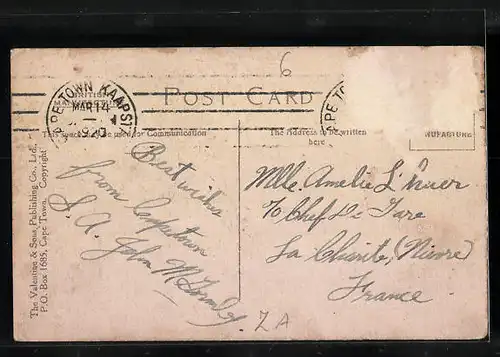 6
CAPE TOWN KAAPST
MAR 14
POST CARD
This space may be used for Communication
The Address to be written
here
The Valentine & Sons Publishing Co., Ltd.,
P.O. Box 1685, Cape Town. Copyright
Best wishes
from Capetown
S. A. John
Mlle. Amelie
c/o Chef De Gare
La Charité, (Nievre)
France
ZA